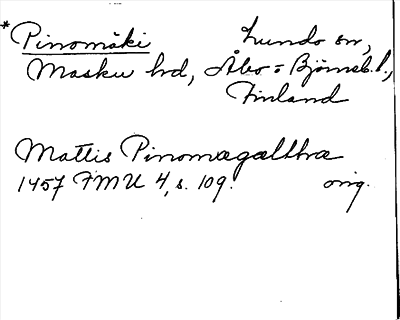 * Pinomäki Lundo sn,
Masku hd, Åbo- o Björneb. l.,
Finland
Mattis Pinomægælthræ
1457 FMU 4, s. 109. orig.